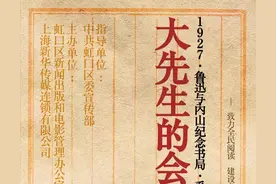 致力全民阅读 建设
1927·鲁迅与内山纪念书局·
大先生的会
指导单位：
中共虹口区委宣传部
主办单位：
虹口区新闻出版和电影管理办公
上海新华传媒连锁有限公司